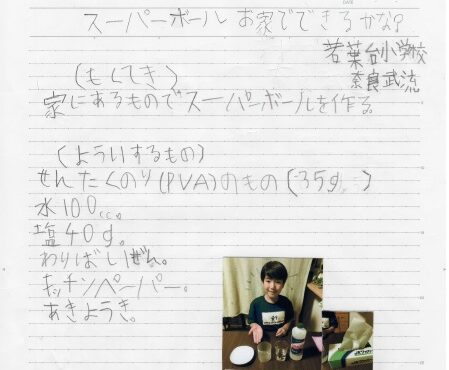 スーパーボール お家でできるかな?
若葉台小学校
奈良武流
(もくてき)
家にあるものでスーパーボールを作る。
(よういするもの)
せんたくのり(PVA)のもの(35g。)
水100cc。
塩40g。
わりばし1ぜん。
キッチンペーパー。
あきようき。